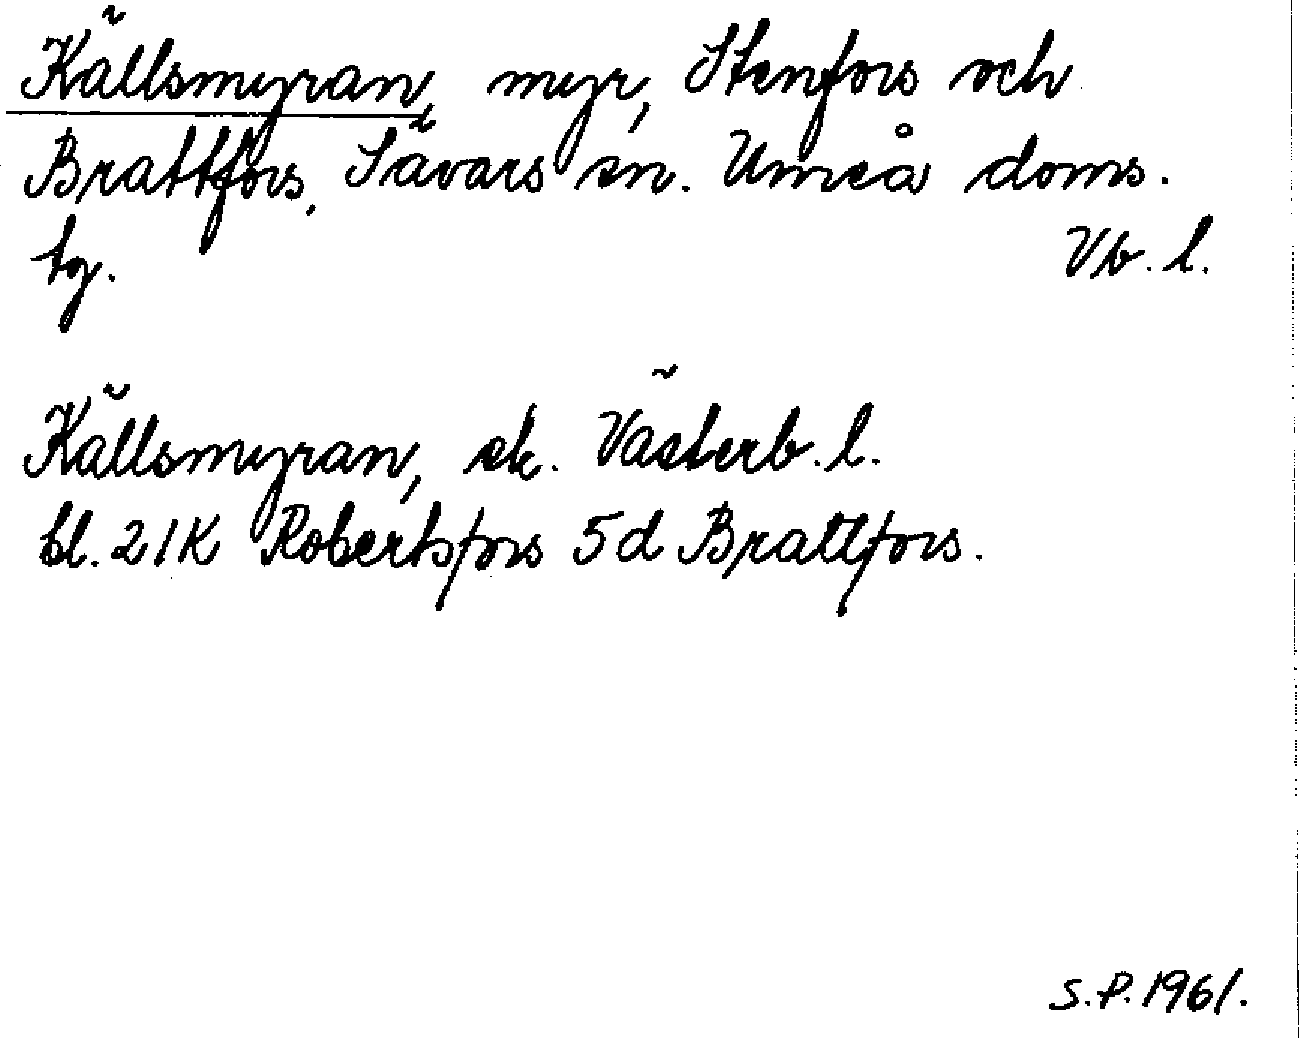 Källsmyran, myr, Stenfors och
Brattfors, Sävars sn. Umeå doms.
tg. Vb. l.
Källsmyran, ek. Västerb. l.
bl. 21K Robertsfors 5d Brattfors.
S.P. 1961.